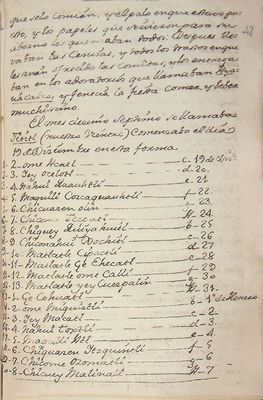 que solo comian, y el palo en que estuvo pu-
esto, y los papeles que sirvieron para su
adorno los quemaban todos. Despues lle-
vaban las Cenizas, y todos los trastos en que
les avian ofrecido las comidas, y los enterra
ban en los adoratorios que llamaban
y fenecia la fiesta comer, y beber
muchisimo.
El mes decimo septimo se llamaba
Tititl (nuestro Vientre) Comenzaba el dia
19 de Diciembre en esta forma.
1- 2- ome Acatl c. 19 de
2- 3- Yey ocelotl d. 20.
3- 4- Nahui Quauhtli e. 21
4- 5- Macuilli Cozcaquauhtli f- 22.
5- 6- Chiquacen olin g- 23.
6- 7- Chicome Tecpatl 24.
7- 8- Chiquey Quiyahuitl b- 25
8- 9- Chiconahui Xochitl c- 26
9- 10- Matlactli Cipactli d. 27
10- 11- Matlactli Ce Ehecatl e- 28
11- 12- Matlactli ome Calli f- 29
12- 13- Matlactli yey Cuezpalin g- 30
13- 1- Ce Cohuatl 31.
2- ome Miquiztli b- 1º de Henero.
3- Yey Mazatl c- 2
4- Nahui Tochtli d- 3
5- Macuili Atl e- 4
6- Chiquacen Itzquintli f- 5
7- Chicome Ozomatli g- 6
8- Chicuey Malinali 7